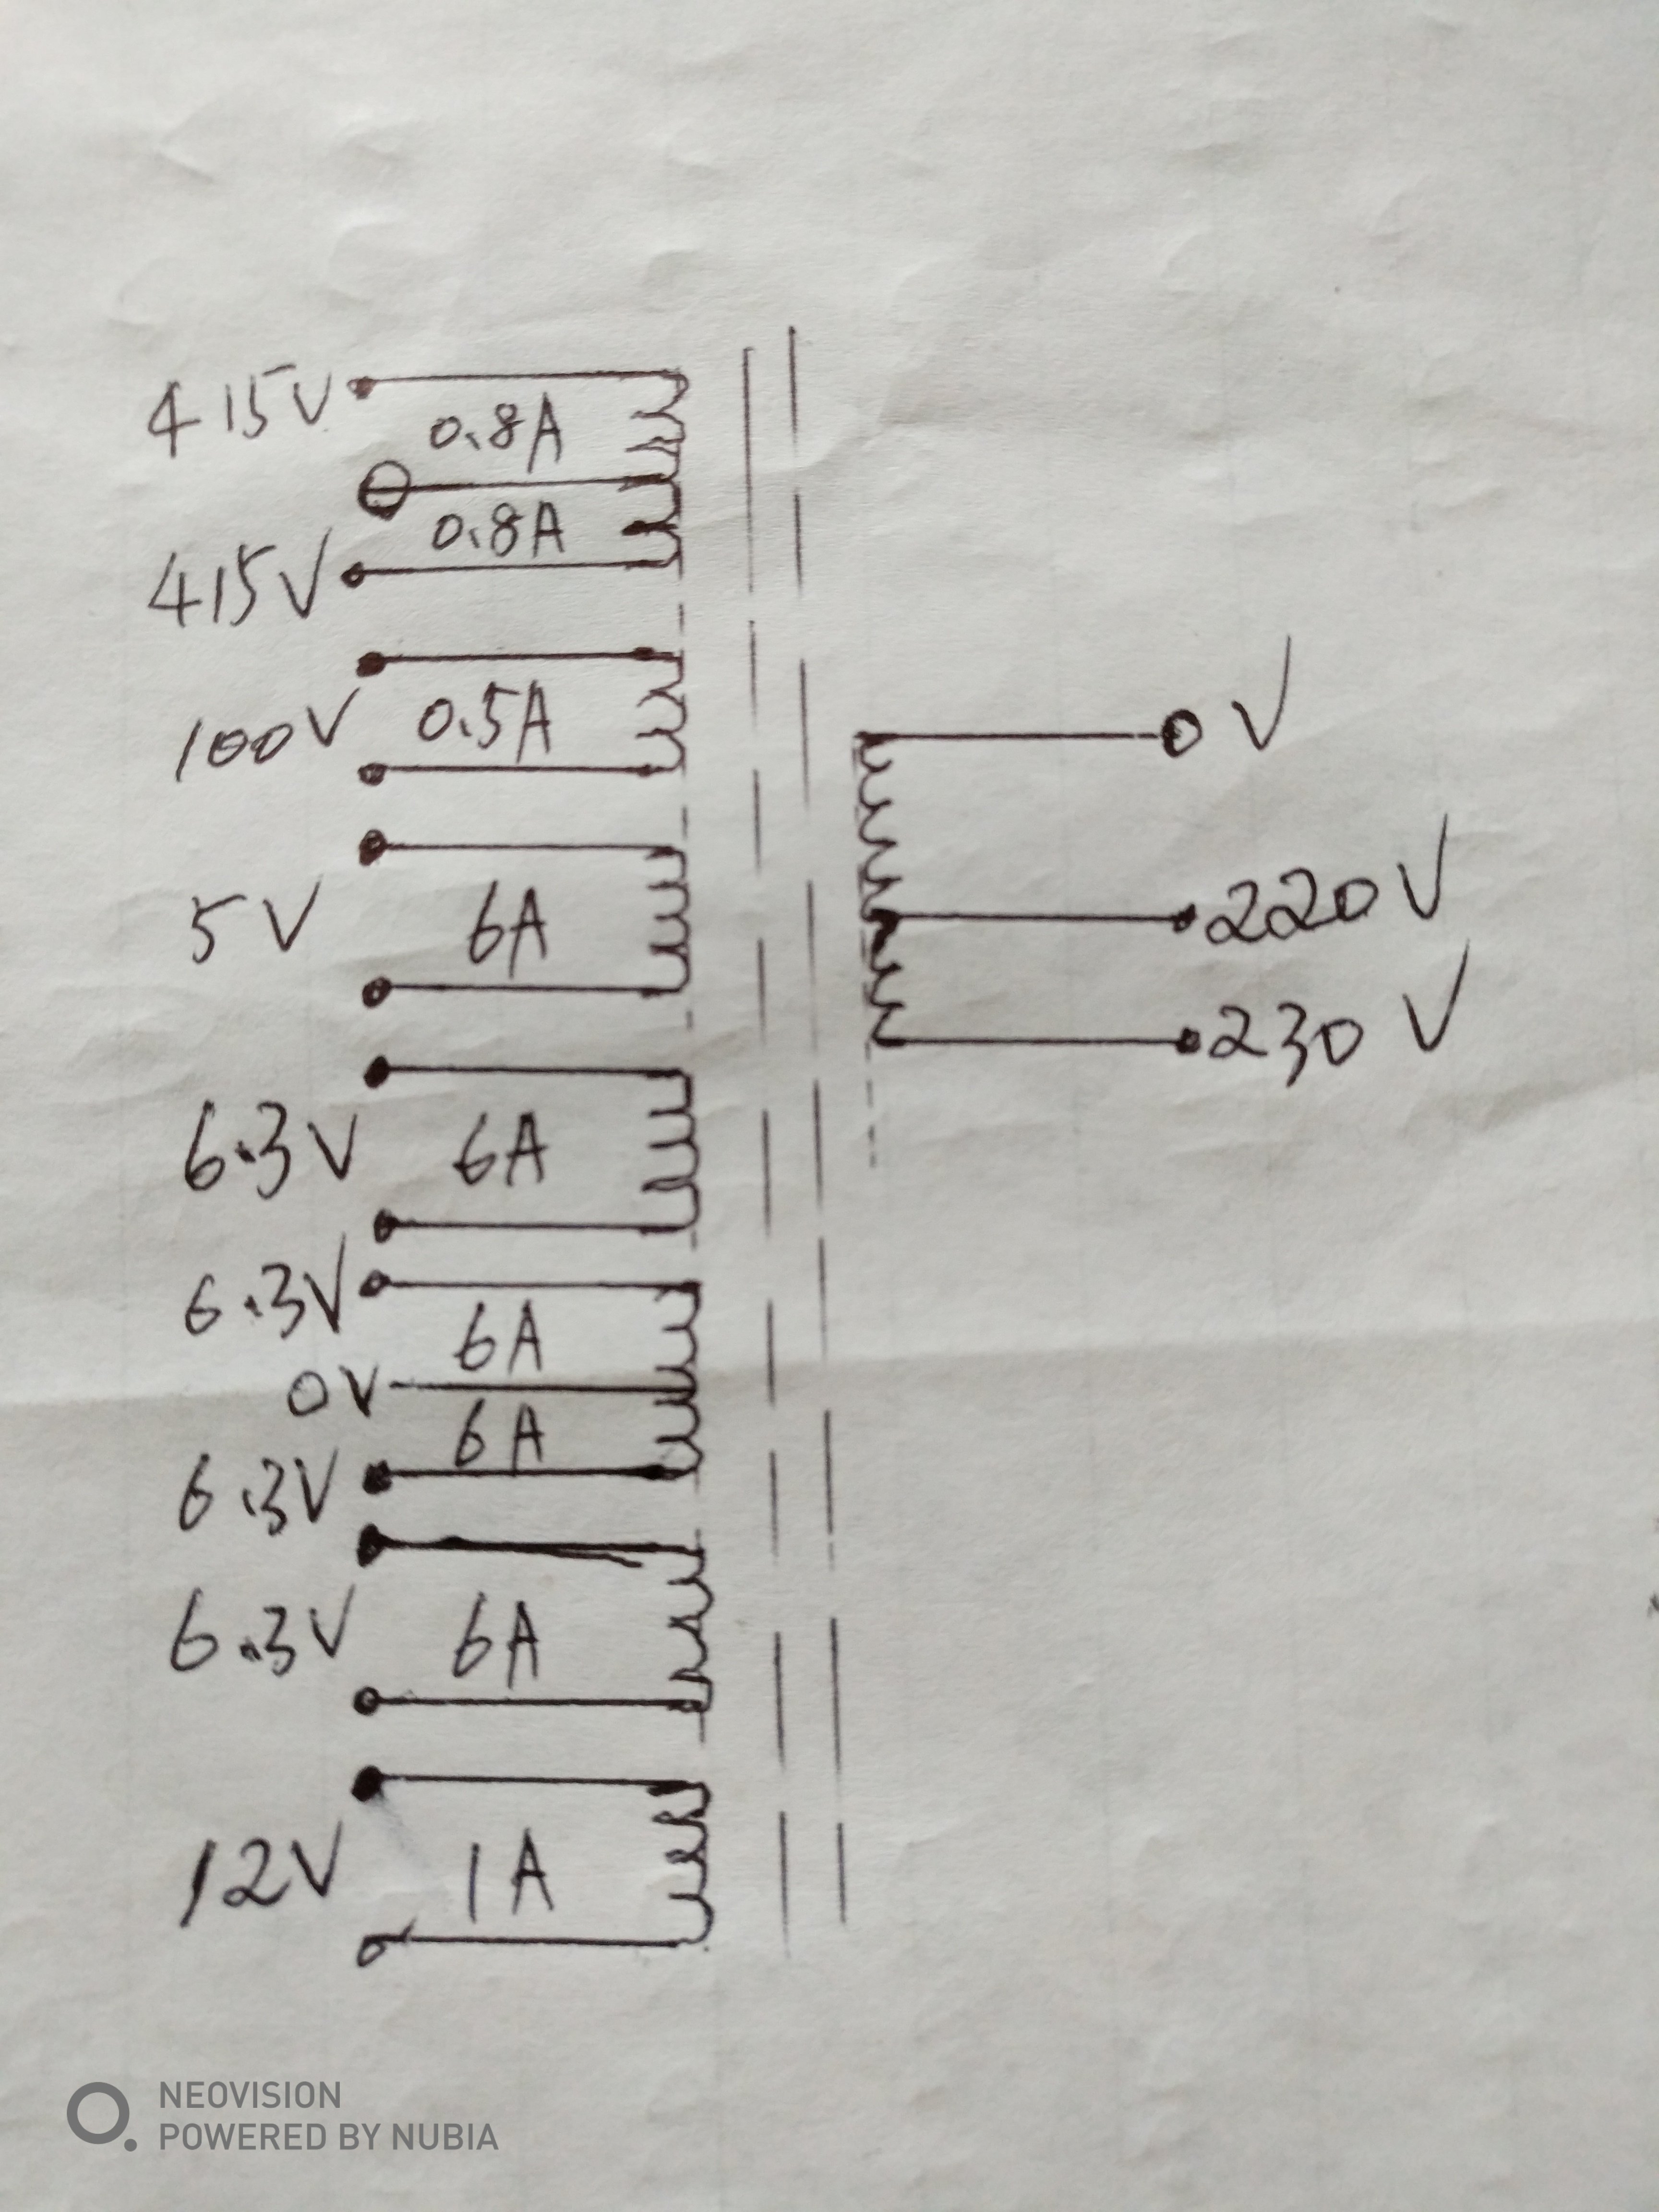 415V
0.8A
0.8A
415V
100V 0.5A
0V
5V 6A
220V
230V
6.3V 6A
6.3V
6A
0V
6A
6.3V
6.3V 6A
12V 1A
NEOVISION
POWERED BY NUBIA